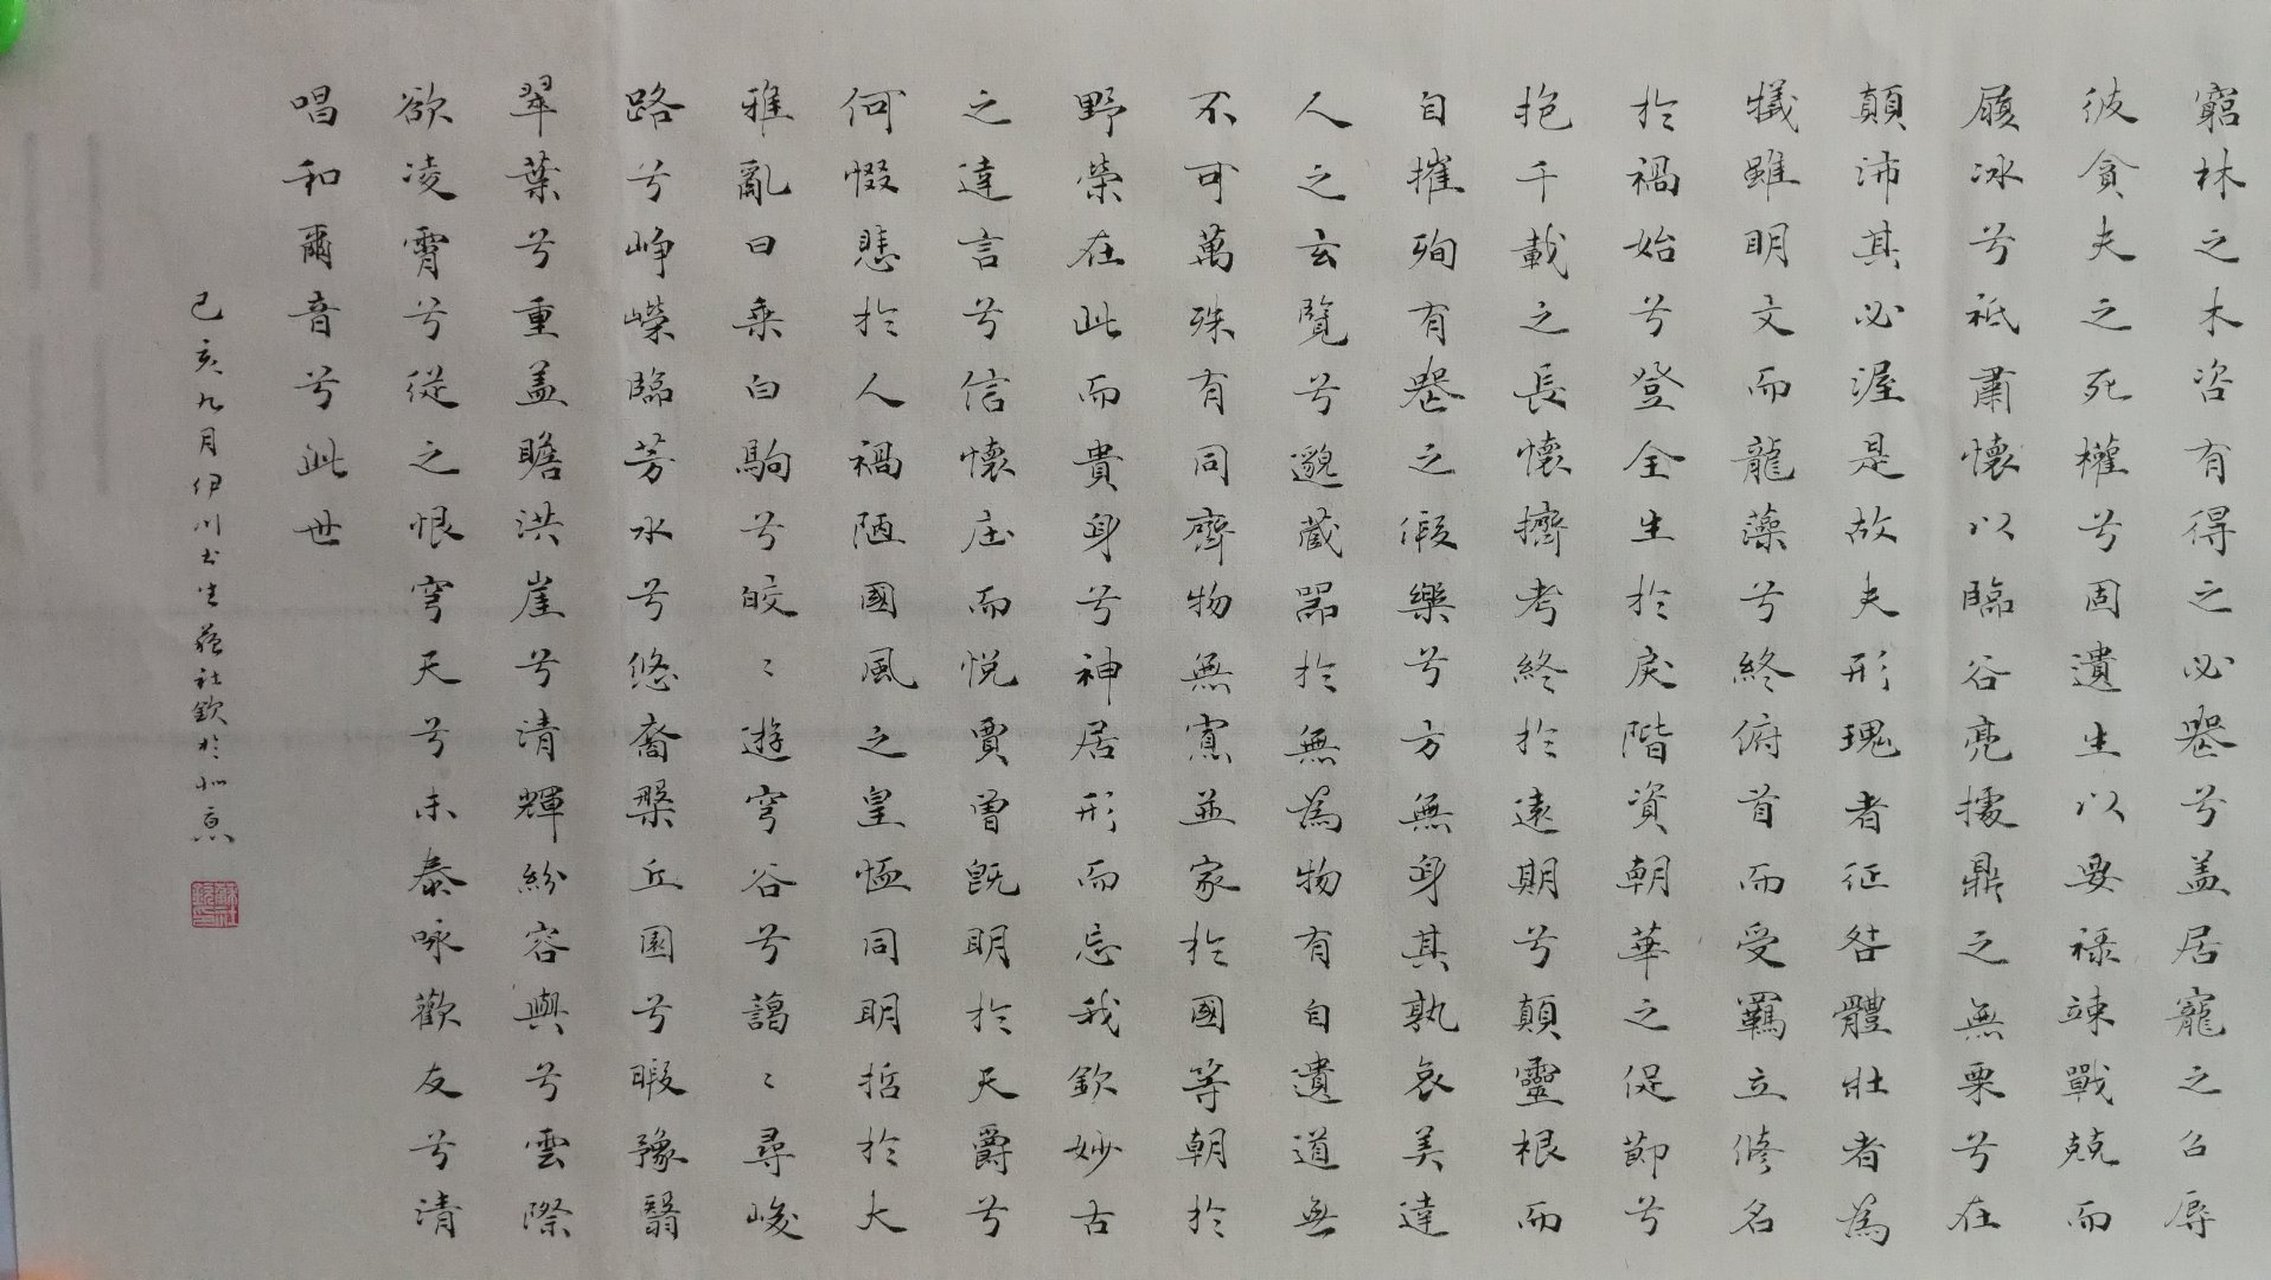 窮林之木咨有得之必喪兮盖居寵之召辱
彼貪夫之死權兮固遺生以要禄竦戰兢而
履冰兮祗肅懷以臨谷亮據鼎之無栗兮在
顛沛其必渥是故夫形瑰者征咎體壯者為
犠雖明文而龍藻兮終俯首而受羈立修名
於禍始兮登全生於戾階資朝華之促節兮
抱千載之長懷擠考終於遠期兮顛靈根而
自摧殉有喪之假樂兮方無身其孰哀美達
人之玄覽兮邈藏器於無為物有自遺道無
不可萬殊有同齊物無賓並家於國等朝於
野榮在此而貴身兮神居形而忘我欽妙古
之達言兮信懷庄而悦賈曾既明於天爵兮
何惙懸於人禍陋國風之皇恤同明哲於大
雅亂曰乘白駒兮皎〻遊穹谷兮藹〻尋峻
路兮崢嶸臨芳水兮悠裔槃丘園兮暇豫翳
翠葉兮重盖瞻洪崖兮清輝紛容與兮雲際
欲凌霄兮從之恨穹天兮未泰咏歡友兮清
唱和爾音兮此世
己亥九月伊川書生蘇社欽於北京